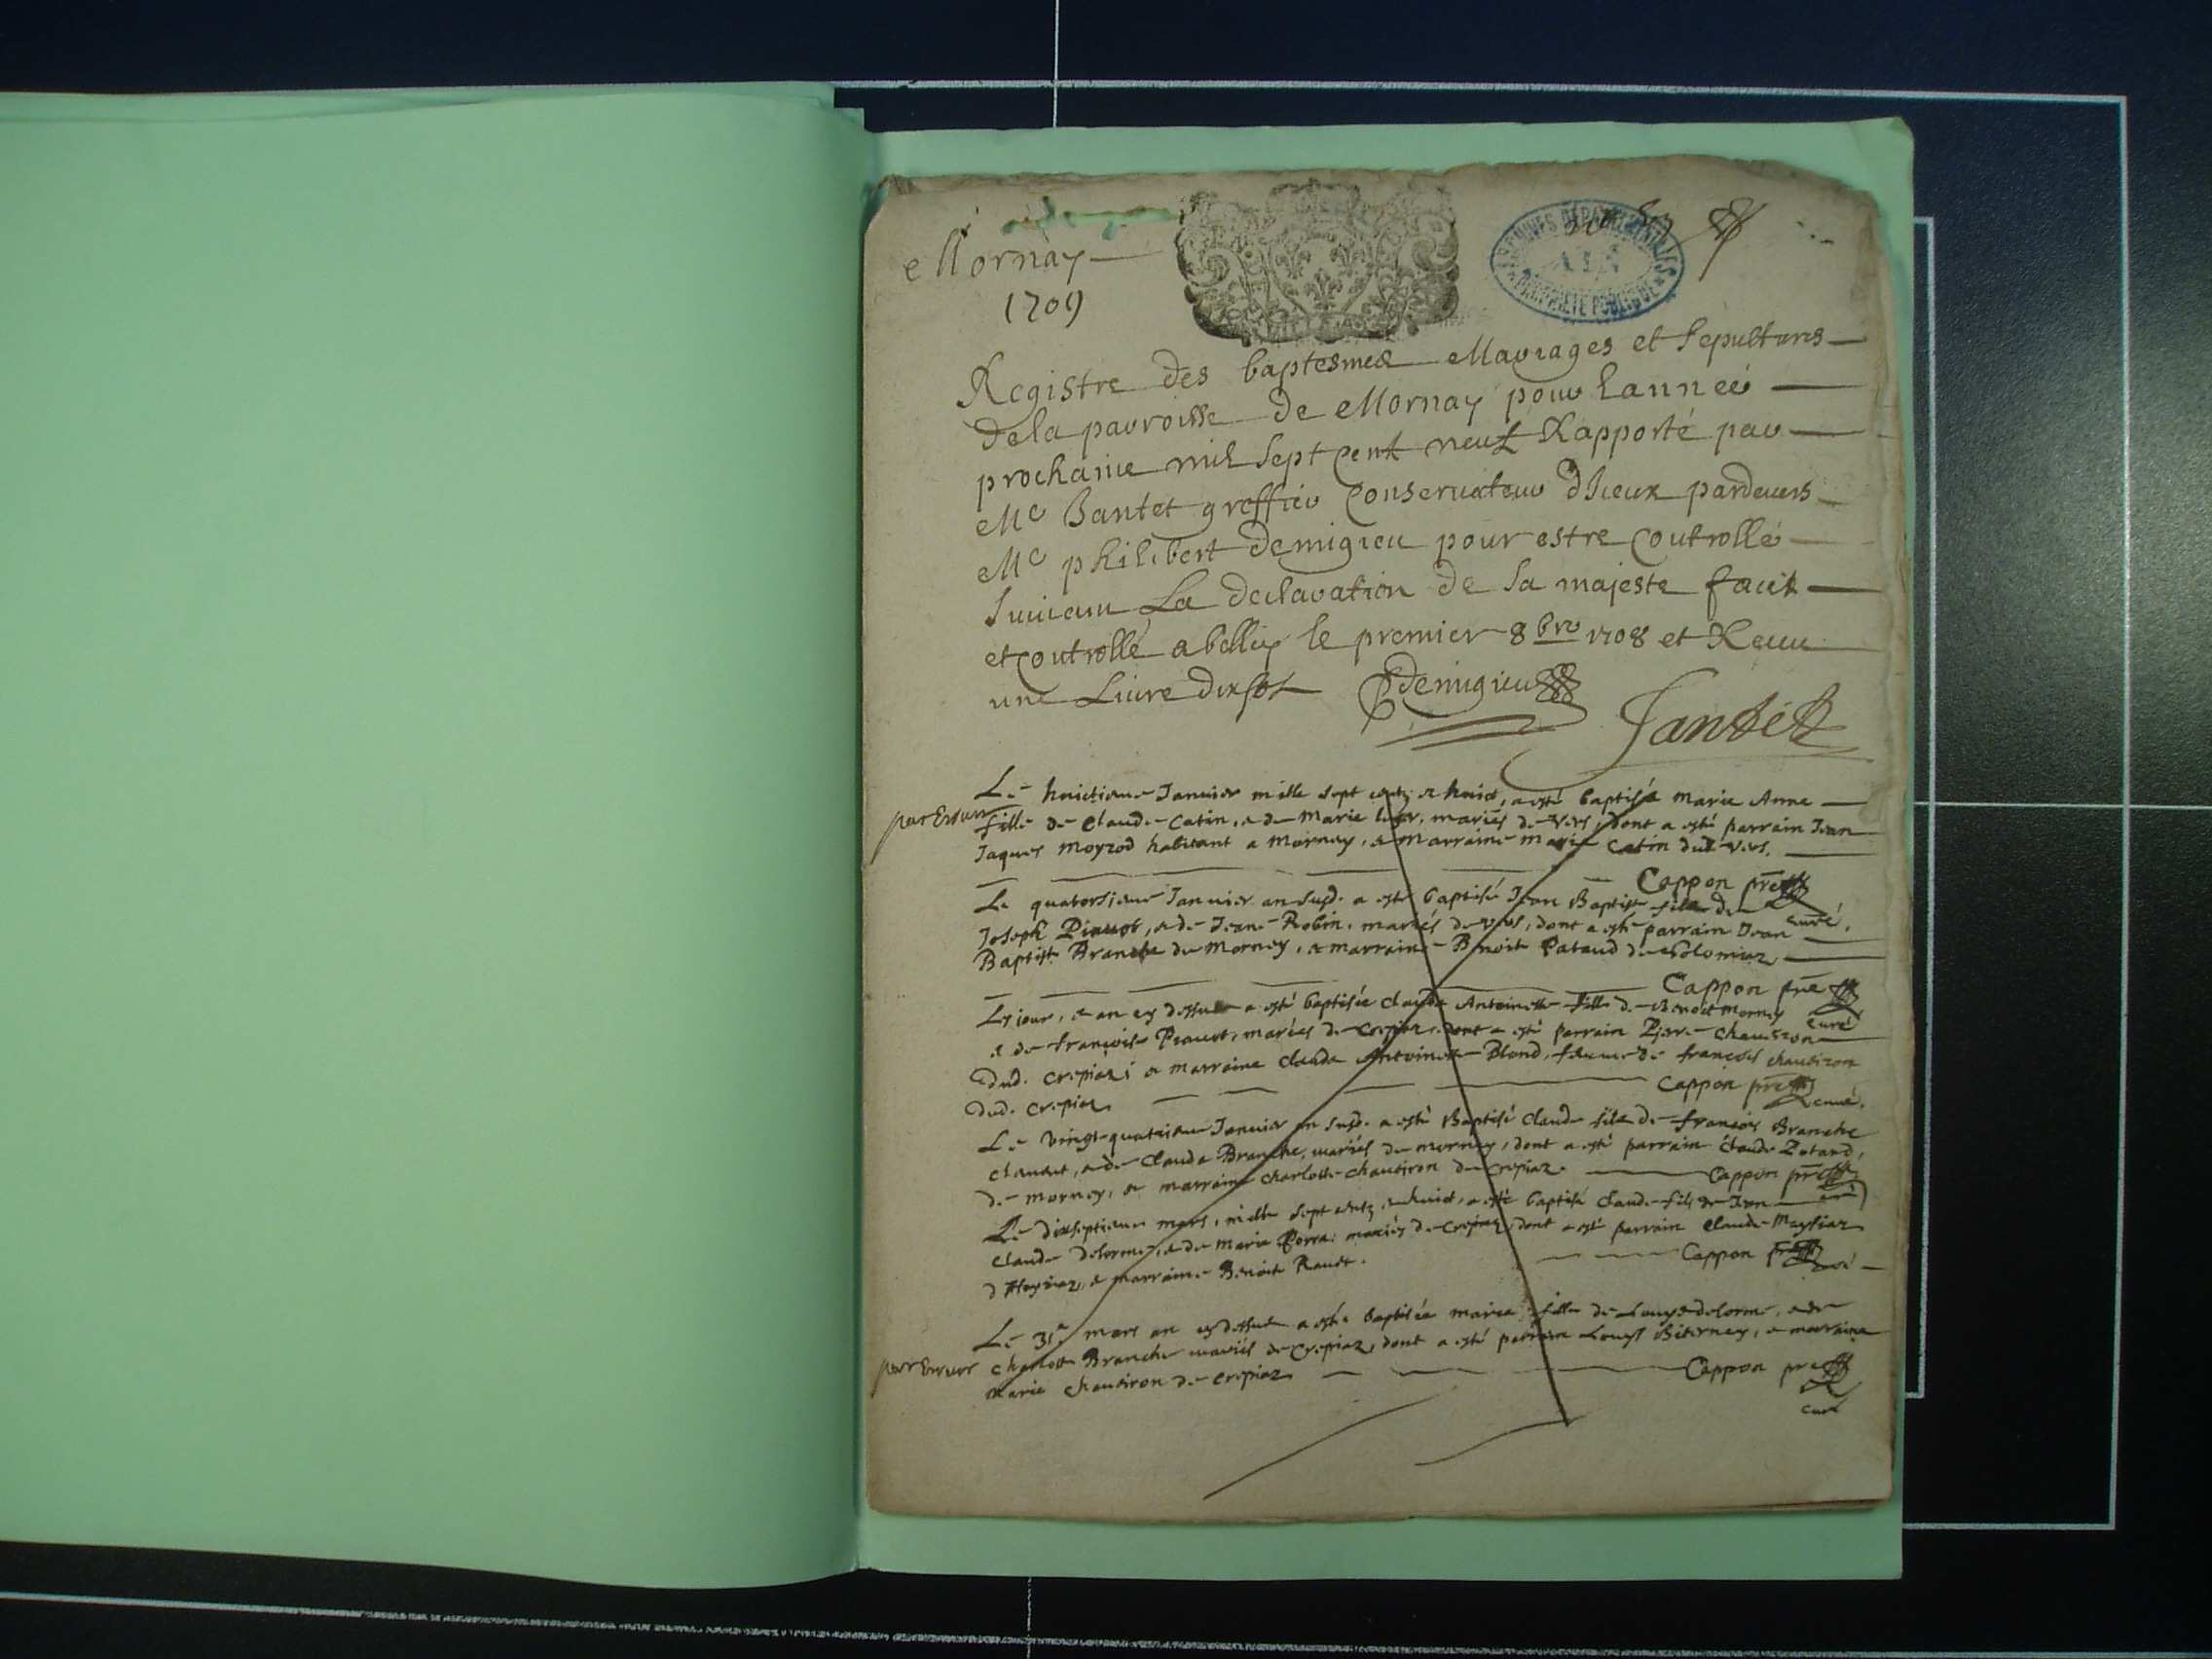 Mornay
1709
ARCHIVES DÉPARTEMENTALES
AIN
PROPRIÉTÉ PUBLIQUE
Registre des baptesmes Mariages et Sepultures
de la parroisse de Mornay pour Lanneé
prochaine mil Sept cent neuf Rapporté par
Me greffier Conservateur dIceux pardevers
Me philibert demigieu pour estre Controllé
Suivant La declaration de Sa majeste fait
et controllé a belley le premier 8bre 1708 et Receu
une Livre dix sol Pdemigieu
par Erreur
Le huictieme Janvier mille sept centz et huict, a esté baptisée Marie Anne
fille de Claude Catin, et de Marie mariés de Vers, dont a esté parrain Jean
Jaques Moyrod habitant a Mornay, et Marraine Marie Catin dud. Vers.
Cappon pre
curé.
Le quatorsieme Janvier an susd. a esté baptisé Jean Baptiste fils de
Joseph et de Jeane Robin, mariés de Vers, dont a esté parrain Jean
Baptiste Branche de Mornay, et marraine Benoite Pataud de
Cappon pre
curé
Les jour, et an cy dessus a esté baptisée Claude Antoinette fille de Benoit Mornay
et de françoise mariés de Crepiaz, dont a esté parrain
dud. Crepiaz; et marraine Claude Antoinette Blond, femme de françois chautiron
dud. Crepiaz.
Cappon pre
curé.
Le vingt-quatrieme Janvier an susd. a esté Baptisé Claude fils de françois Branche
et de Claude Branche, mariés de Mornay, dont a esté parrain Claude
de Mornay, et marraine Charlotte chautiron de Crepiaz.
Cappon pre
curé
Le dixseptieme mars, mille sept centz et huict, a esté baptisé Claude fils de Jean
Claude Delorme, et de Marie mariés de Crepiaz, dont a esté parrain Claude
et marraine Benoite
Cappon pre
curé
par Erreur
Le 31e mars an cy dessus a esté baptisée Marie fille de Louys Delorme, et de
Charlotte Branche mariés de Crepiaz, dont a esté parrain Louys et marraine
Marie chautiron de Crepiaz
Cappon pre
curé